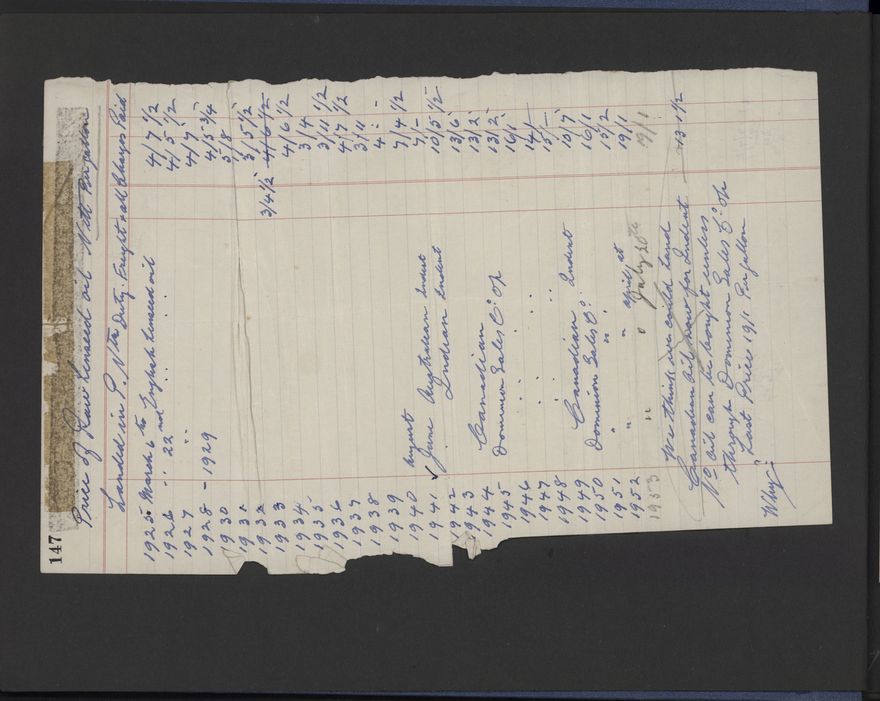 147
Price of Raw Linseed oil Nett Per gallon
Landed in P. Nth Duty. Freight & all Charges Paid
1925. March 6th English Linseed oil 4/7 1/2
1926 .. 22nd .. .. .. 4/5 1/2
1927 .. 4/7
1928 - 1929 4/5 3/4
1930 3/8
1931 3/5 1/2
1932 3/4 1/2 4/6 1/2
1933 4/6 1/2
1934 3/4
1935 3/11 1/2
1936 4/7 1/2
1937 3/11
1938 4 : -
1939 7/4 1/2
1940 August 7/-
1941 June Australian Indent 10/5 1/2
1942 Indian Indent 13/6
1943 Canadian 13/2
1944 Dominion Sales Co. Op 13/2
1945 .. .. .. 16/1
1946 .. .. .. 14/-
1947 .. .. .. 15/-
1948 Canadian Indent 15/7
1949 Dominion Sales Co. 16/1
1950 " " 15/2
1951 " " April at 19/1
1952 " " July 20th 19/1
1953
We think we could land
Canadian oil now for Indent 13 1/2
No oil can be bought unless
through Dominion Sales Co. Op
Why? Last Price 19/1 Per gallon